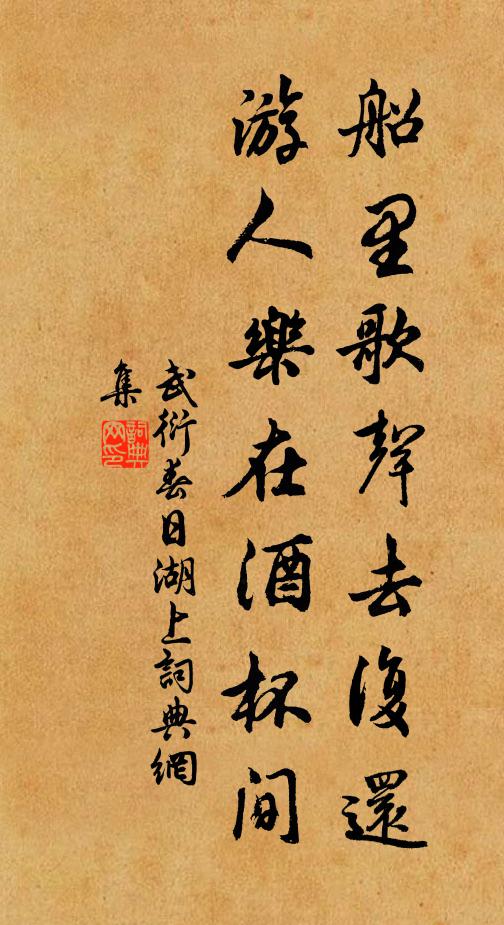 船里歌聲去復還
游人樂在酒杯間
武衍春日湖上詞典網
集
詞典網印